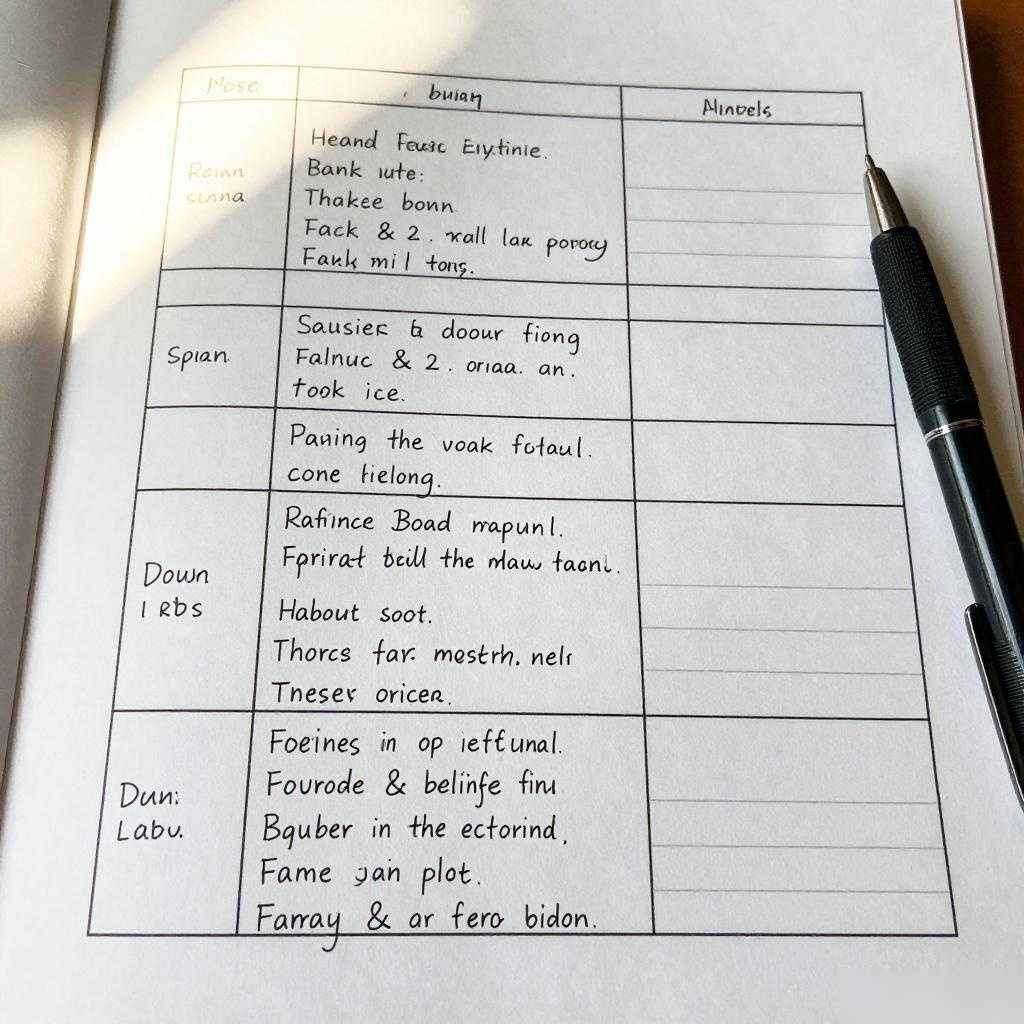 buian
Heand
Bank iute:
Thakee bonn
Fack & 2. xall lak porocy
Fank mil tons.
Spian
Sausiek & doour fiong
Falnuc & 2. oriaa. an.
took ice.
Paning the voak fotaul.
cone tielong.
Down
I Rbs
Rafince Boad mapunl.
Fprirat bcill the maw taonl.
Habout soot.
Thorcs far. mestrh. nelr
Tneser oricer.
Duni
Labu.
Foeines in op ieffunal.
Fourode & belinfe finu
Bquber in the ectorind,
Fame gain plot.
Farray & ar fero bidon.